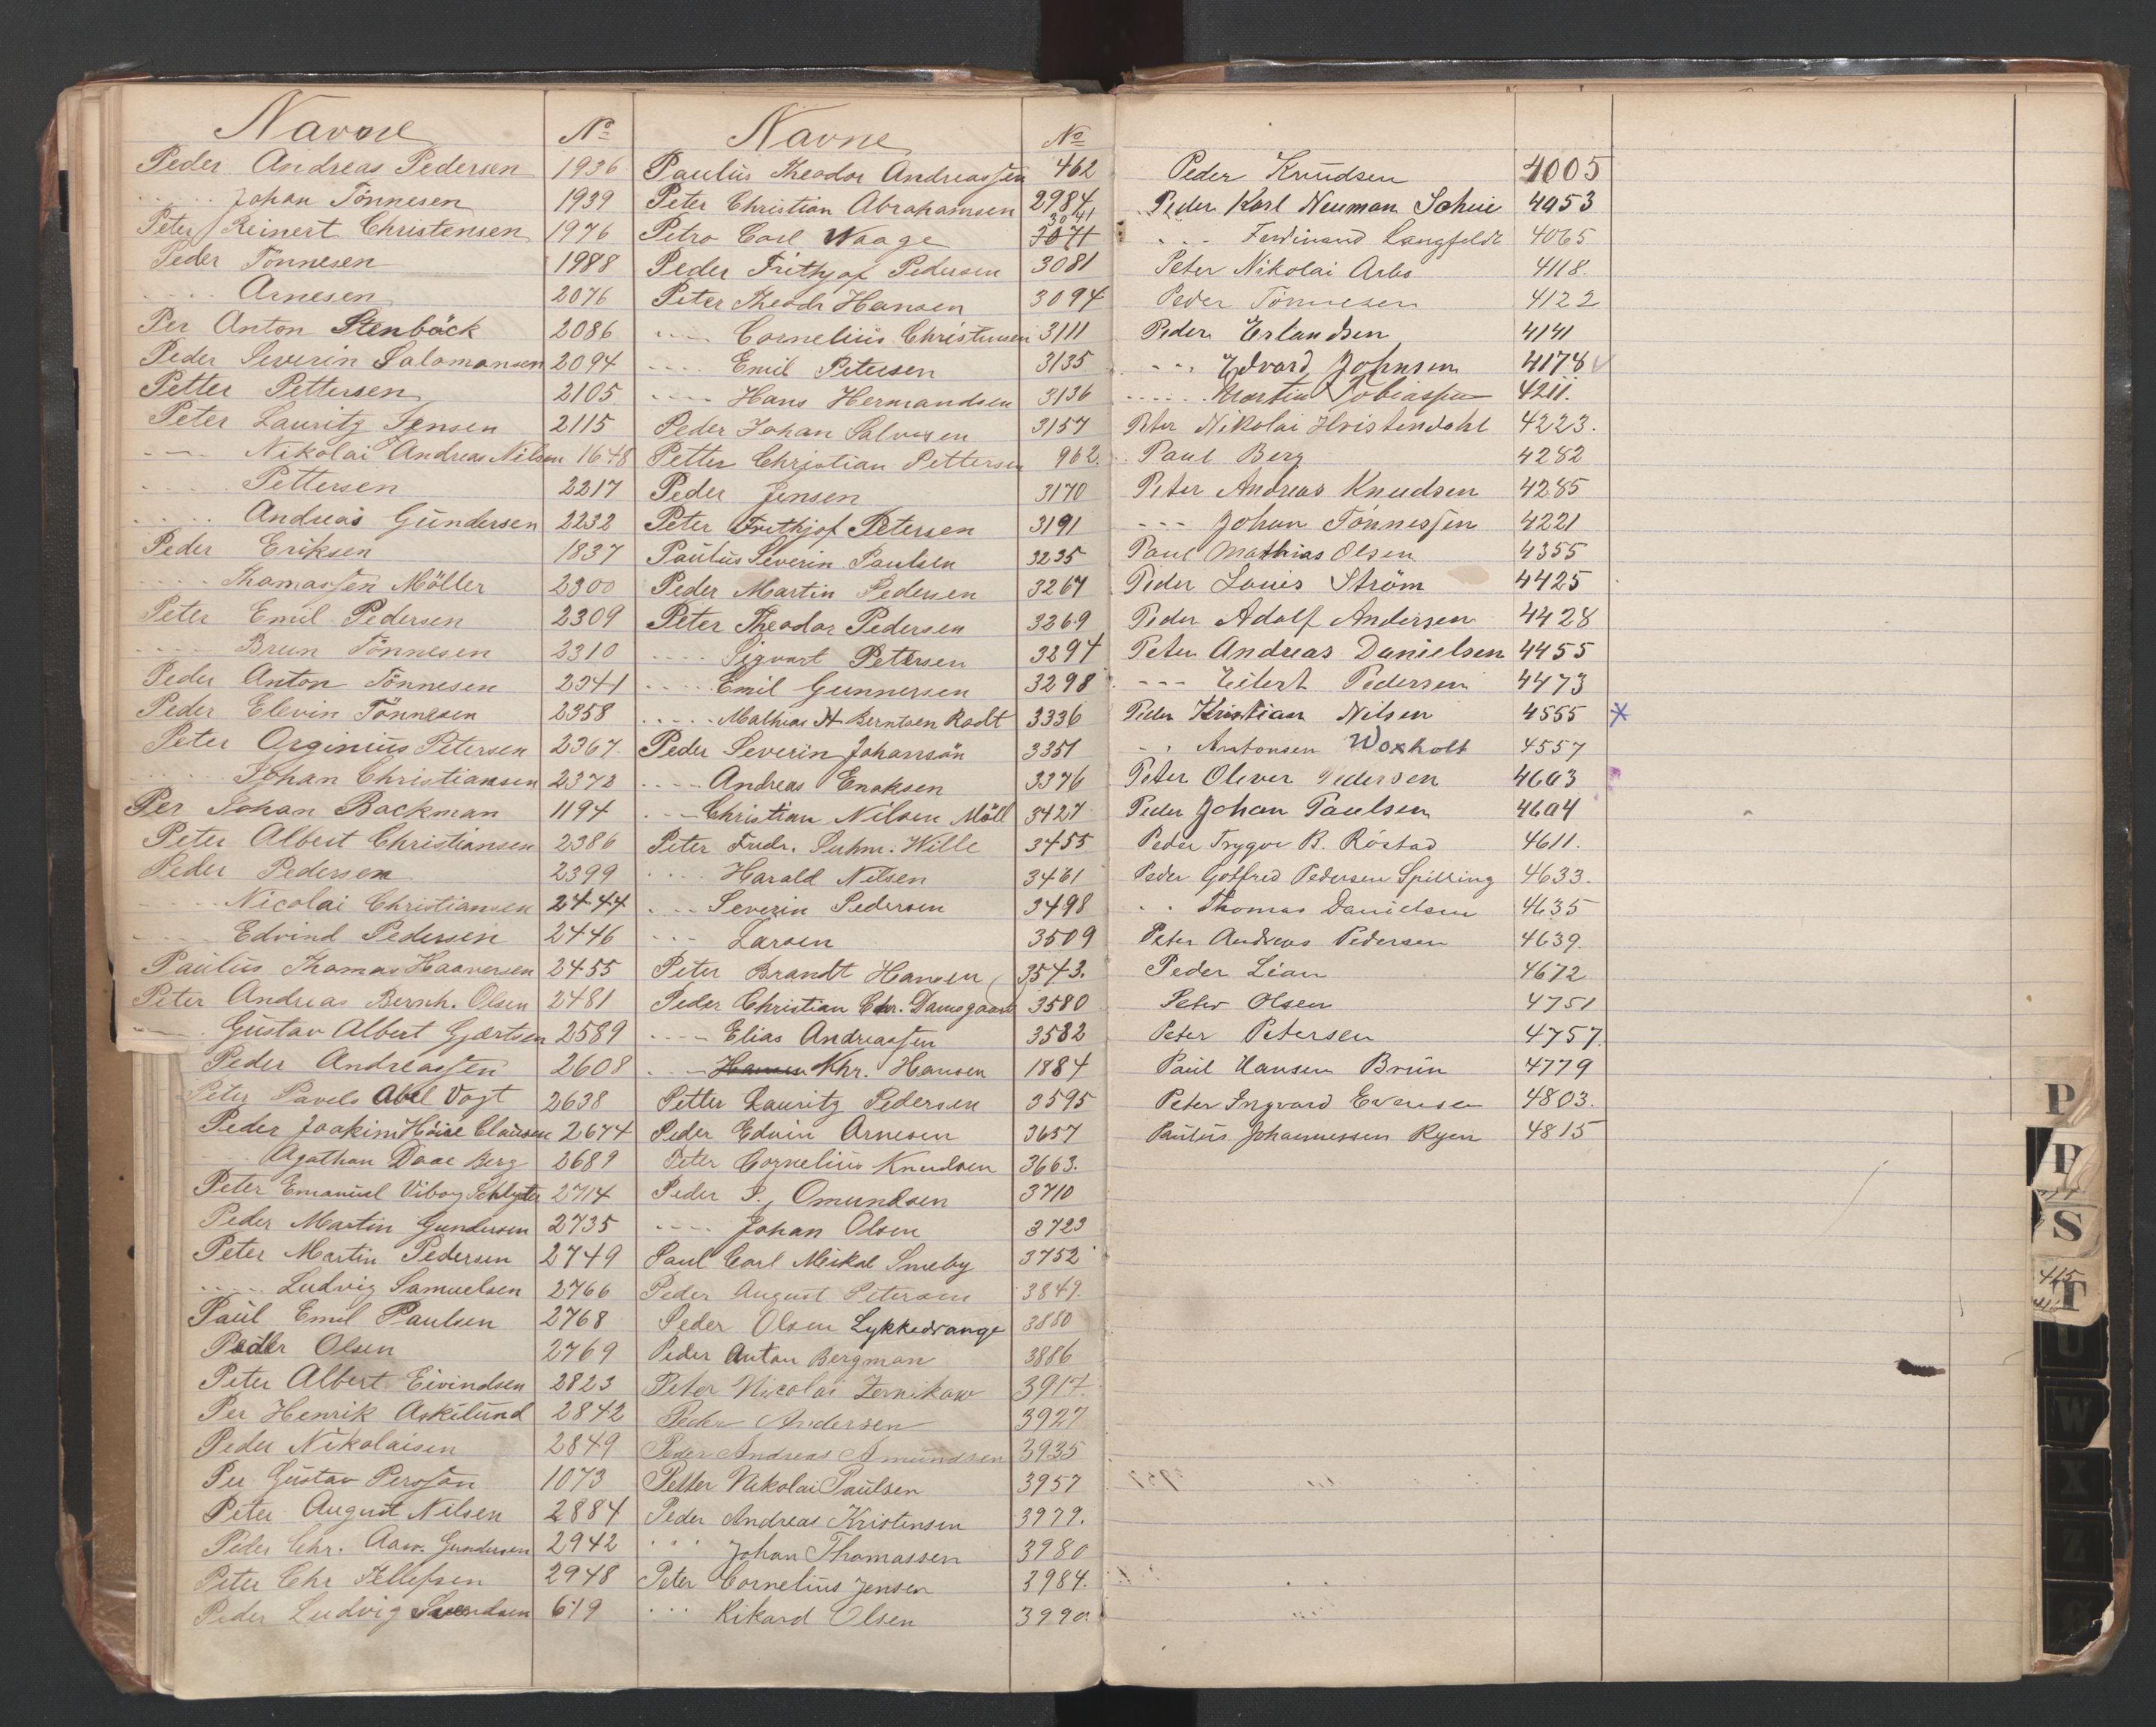 Navne No
Peder Andreas Pedersen 1936
..... Johan Tönnesen 1939
Peter Reinert Christensen 1976
Peder Tönnesen 1988
.... Arnesen 2076
Per Anton Stenbäck 2086
Peder Severin Salomonsen 2094
Petter Pettersen 2105
Peter Lauritz Jensen 2115
---- Nikolai Andreas Nilsen 1648
.... Pettersen 2217
..... Andreas Gundersen 2232
Peder Eriksen 1837
.... Thomassen Möller 2300
Peter Emil Pedersen 2309
.... Brun Tönnesen 2310
Peder Anton Tönnesen 2341
Peder Elevin Tönnesen 2358
Peter Orginius Petersen 2367
.... Johan Christiansen 2372
Per Johan Backman 1194
Peter Albert Christiansen 2386
Peder Pedersen 2399
.... Nicolai Christiansen 2444
.... Edvind Pedersen 2446
Paulus Thomas Haaversen 2455
Peter Andreas Bernh. Olsen 2481
---- Gustav Albert Gjærtsen 2589
Peder Andreassen 2608
Peter Pavels Abel Vogt 2638
Peder Joakim Höier Clausen 2674
.... Agathon Daae Berg 2689
Peter Emanuel Viborg Schlyter 2714
Peder Martin Gundersen 2735
Peter Martin Pedersen 2749
.... Ludvig Samuelsen 2766
Paul Emil Paulsen 2768
Peder Olsen 2769
Peter Albert Eivindsen 2823
Per Henrik Askelund 2842
Peder Nikolaisen 2849
Per Gustav Persson 1073
Peter August Nilsen 2884
Peder Chr. Aaw. Gundersen 2942
Peter Chr Tellefsen 2948
Peder Ludvig Svendsen 619
Navne No
Paulus Theodor Andreassen 462
Peter Christian Abrahamsen 2984
Petro Carl Waage 3041 3071
Peder Frithjof Pedersen 3081
Peter Theodr Hansen 3094
---- Cornelius Christensen 3111
.... Emil Petersen 3135
---- Hans Hermandsen 3136
Peder Johan Salvesen 3157
Petter Christian Pettersen 962.
Peder Jensen 3170
Peter Frithjof Petersen 3191
Paulus Severin Paulsen 3235
Peder Martin Pedersen 3267
Peter Theodor Pedersen 3269
.... Sigvart Petersen 3294
.... Emil Gunnersen 3298
..... Mathias N. Berntsen Rodt 3336
Peder Severin Johansön 3351
.... Andreas Enoksen 3376
.... Christian Nilsen Möll 3427
Peter Fredr. Suhm. Wille 3455
.... Harald Nilsen 3461
... Severin Pedersen 3498
... Larsen 3509
Peter Brandt Hansen 3543.
Peder Christian Chr. Damsgaard 3580
---- Elias Andreassen 3582
... Hansen Khr. Hansen 1884
Petter Lauritz Pedersen 3595
Peder Edvin Arnesen 3657
Peter Cornelius Knudsen 3663.
Peder P. Omundsen 3710
.... Johan Olsen 3723
Paul Carl Meikal Smeby 3752
Peder August Petersen 3849.
Peder Olsen Lykkedrange 3880
Peder Anton Bergman 3886
Peter Nicolai Zernikow 3917.
Peder Andersen 3927
Peder Andreas Amundsen 3935
Petter Nikolai Paulsen 3957
Peder Andreas Kristensen 3979.
... Johan Thomassen 3980
Peter Cornelius Jensen 3984.
... Rikard Olsen 3990.
Peder Knudsen 4005
Peder Karl Neuman Scheie 4053
... Ferdinand Langfeldt 4065
Peter Nikolai Arbo 4118.
Peder Tönnesen 4122
Peder Erlandsen 4141
... Edvard Johnsen 4178
.... Martin Tobiassen 4211.
Peter Nikolai Hvistendahl 4223.
Paul Berg 4282
Peter Andreas Knudsen 4285
--- Johan Tönnessen 4221
Paul Mathias Olsen 4355
Peder Louis Ström 4425
Peder Adolf Andersen 4428
Peter Andreas Danielsen 4455
--- Eilert Pedersen 4473
Peder Kristian Nilsen 4555 *
.. Antonsen Woxholt 4557
Peter Oliver Pedersen 4603
Peder Johan Paulsen 4604
Peder Trygve B. Röstad 4611.
Peder Gotfred Pedersen Spilling 4633.
.. Thomas Danielsen 4635
Peter Andreas Pedersen 4639.
Peder Lian 4672
Peter Olsen 4751
Peter Petersen 4757.
Paul Hansen Brun 4779
Peter Ingvard Evensen 4803.
Paulus Johannessen Ryen 4815
P
P
S
T
U
W
X
Z